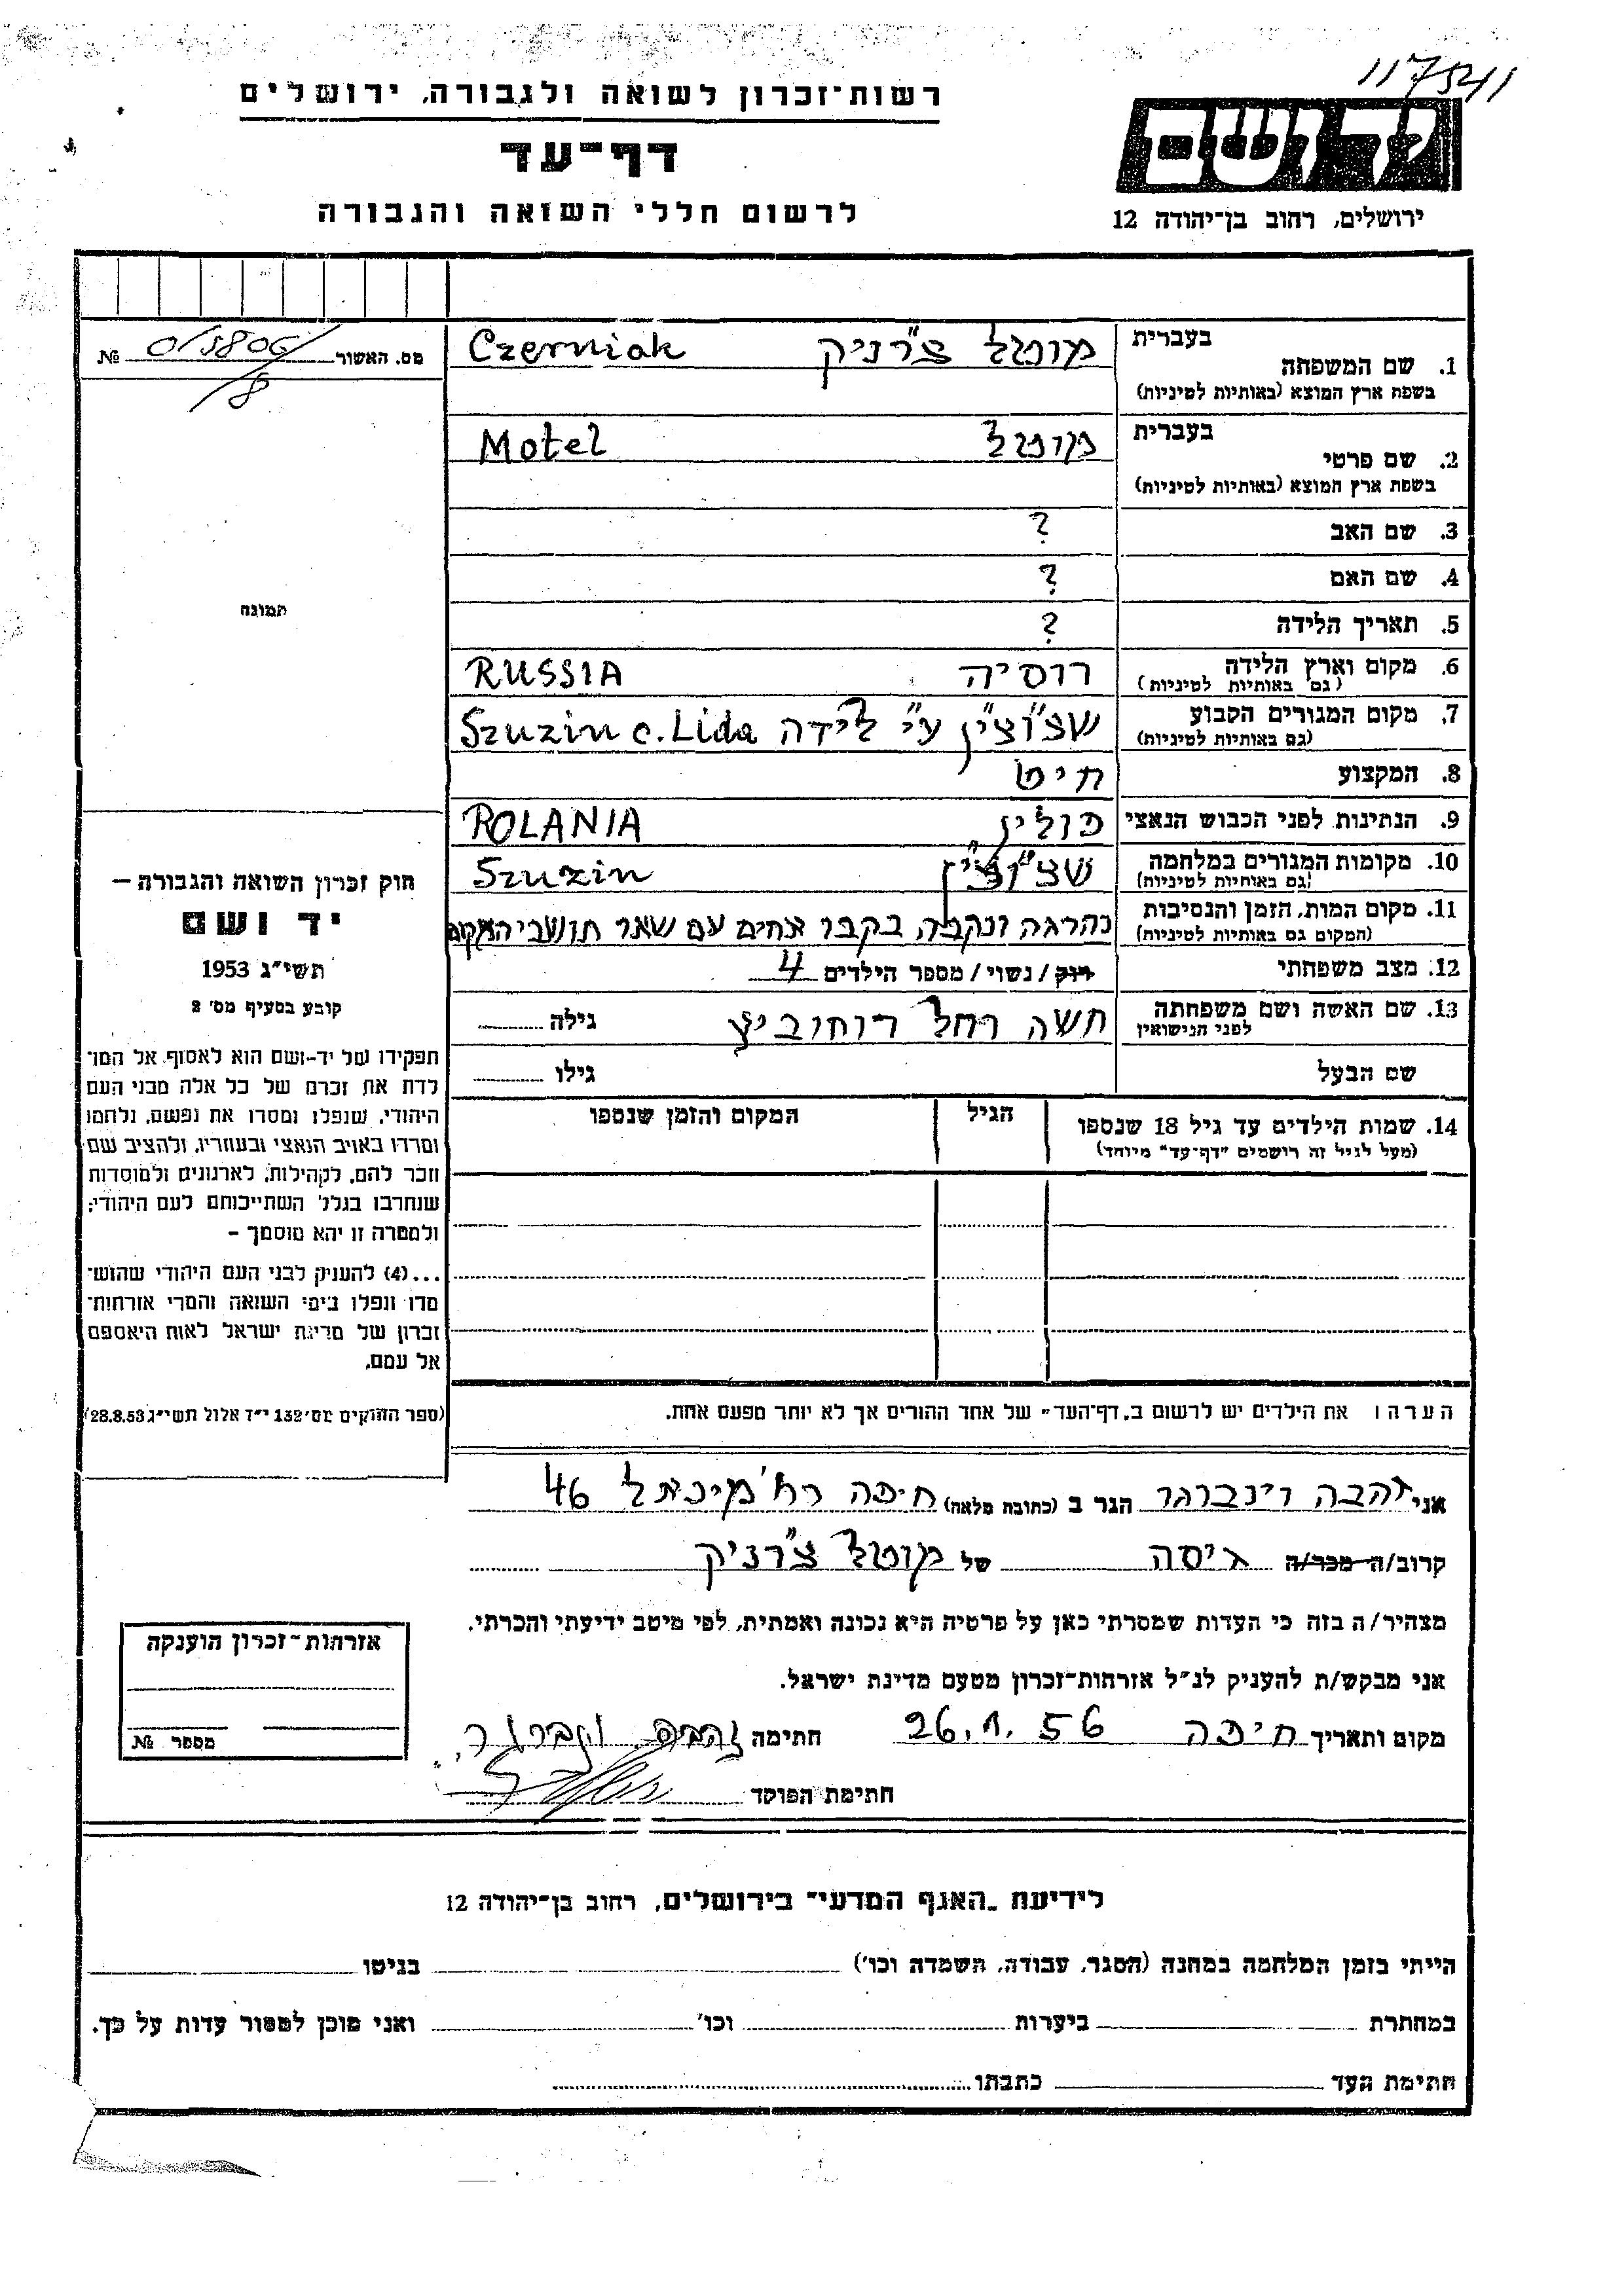 117541
רשות־זכרון לשואה ולגבורה, ירושלים
דף־עד
לרשום חללי השואה והגבורה
יד ושם
ירושלים, רחוב בן־יהודה 12
מס. האשור № 0/5806/8
1. שם המשפחה בעברית מוטל צ"רניק Czerniak
בשפת ארץ המוצא (באותיות לטיניות)
2. שם פרטי בעברית מוטל Motel
בשפת ארץ המוצא (באותיות לטיניות)
3. שם האב ?
4. שם האם ?
5. תאריך הלידה ?
6. מקום וארץ הלידה רוסיה RUSSIA
(גם באותיות לטיניות)
7. מקום המגורים הקבוע שצ"וצ"ין ע"י לידה Szuzin c. Lida
(גם באותיות לטיניות)
8. המקצוע חייט
9. הנתינות לפני הכבוש הנאצי פולין POLANIA
10. מקומות המגורים במלחמה שצ"וצ"ין Szuzin
(גם באותיות לטיניות)
11. מקום המות, הזמן והנסיבות נהרגה ונקברה בקבר אחים עם שאר תושבי המקום
(המקום גם באותיות לטיניות)
12. מצב משפחתי רוק / נשוי / מספר הילדים 4
13. שם האשה ושם משפחתה חשה רחל רוחוביץ גילה
לפני הנישואין
שם הבעל גילו
14. שמות הילדים עד גיל 18 שנספו הגיל המקום והזמן שנספו
(מעל לגיל זה רושמים "דף־עד" מיוחד)
הערה: את הילדים יש לרשום ב"דף־העד" של אחד ההורים אך לא יותר מפעם אחת.
תמונה
חוק זכרון השואה והגבורה —
יד ושם
תשי"ג 1953
קובע בסעיף מס' 2
תפקידו של יד-ושם הוא לאסוף אל המו־
לדת את זכרם של כל אלה מבני העם
היהודי, שנפלו ומסרו את נפשם, נלחמו
ומרדו באויב הנאצי ובעוזריו, ולהציב שם
וזכר להם, לקהילות, לארגונים ולמוסדות
שנחרבו בגלל השתייכותם לעם היהודי;
ולמטרה זו יהא מוסמך —
...(4) להעניק לבני העם היהודי שהוש־
מדו ונפלו בימי השואה והמרי אזרחות־
זכרון של מדינת ישראל לאות היאספם
אל עמם.
(ספר החוקים מס' 132 י"ז אלול תשי"ג 28.8.53)
אני זהבה וינברגר הגר ב (כתובת מלאה) חיפה רח' מיכאל 46
קרוב/ה מכר/ה גיסה של מוטל צ"רניק
מצהיר/ה בזה כי העדות שמסרתי כאן על פרטיה היא נכונה ואמתית, לפי מיטב ידיעתי והכרתי.
אני מבקש/ת להעניק לנ"ל אזרחות־זכרון מטעם מדינת ישראל.
מקום ותאריך חיפה 26.1.56 חתימה זהבה וינברגר
חתימת הפוקד
אזרחות־זכרון הוענקה
מספר №
לידיעת "האגף המדעי" בירושלים, רחוב בן־יהודה 12
הייתי בזמן המלחמה במחנה (הסגר, עבודה, השמדה וכו') בגיטו
במחתרת ביערות וכו' ואני מוכן למסור עדות על כך.
חתימת העד כתבתו